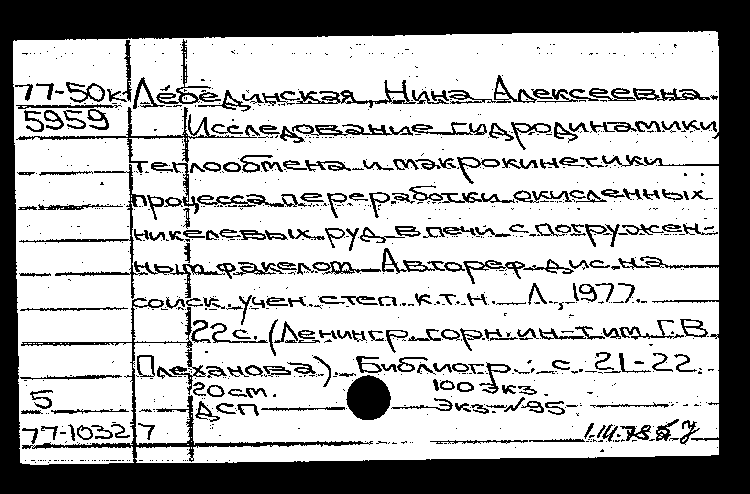 77-50к Лебединская, Нина Алексеевна.
5959 Исследование гидродинамики,
теплообмена и макрокинетики
процесса переработки окисленных
никелевых руд в печи с погружен-
ным факелом. Автореф. дис. на
соиск. учен. степ. к.т.н. Л., 1977.
22 с. (Ленингр. горн. ин-т им. Г.В.
Плеханова). Библиогр.: с. 21-22.
20 см. 100 экз.
5 ДСП Экз. №95
77-10327 1.III.78